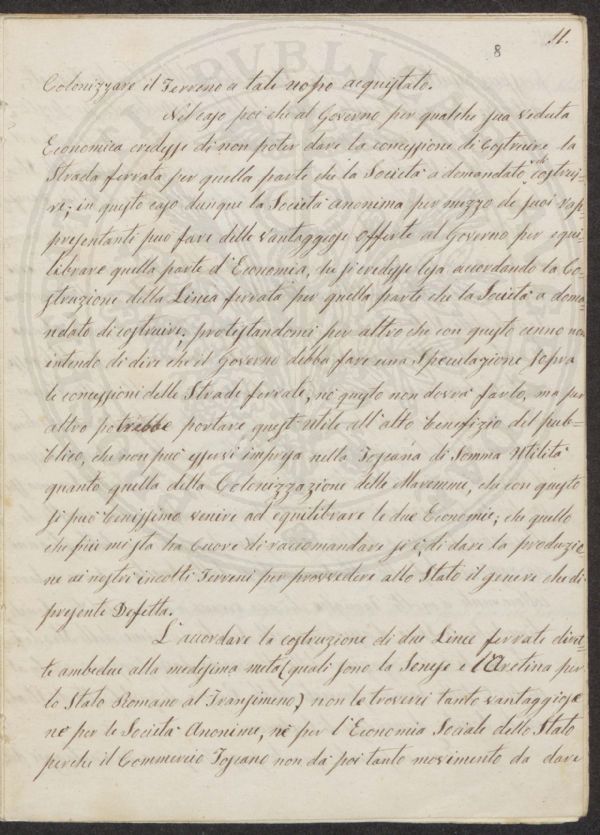 11.
8
Colonizzare il Terreno a tale uopo acquistato.
Nel caso poi che al Governo per qualche sua veduta
Economica credesse di non poter dare la concessione di Costruire la
Strada ferrata per quella parte che la Società a domandato di costrui-
re; in questo caso dunque la Società Anonima per mezzo de suoi Rap-
presentanti può fare delle vantaggiose offerte al Governo per equi-
librare quella parte d'Economia, che si credesse lesa accordando la Co-
struzione della Linea ferrata per quella parte che la Società a doma-
ndato di costruire; protestandomi per altro che con questo cenno non
intendo di dire che il Governo debba fare una Speculazione sopra
le concessioni delle Strade ferrate, nè questo non dovrà farlo, ma per
altro potrebbe portare quest'utile all'alto benefizio del pub-
blico, che non può esservi impresa nella Toscana di Somma Utilità
quanto quella della Colonizzazione delle Maremme, che con questo
si può benissimo venire ad equilibrare le due Economie; che quello
che più mi sta ha Cuore di raccomandare si è, di dare la produzio
ne ai nostri incolti Terreni per provvedere allo Stato il genere che di
presente Defetta.
L'accordare la costruzione di due Linee ferrate diret-
te ambedue alla medesima meta (quali sono la Senese e l'Aretina per
lo Stato Romano al Transimeno) non le troverei tanto vantaggiose
ne per le Società Anonime, nè per l'Economia Sociale dello Stato
perchè il Commercio Toscano non dà poi tanto movimento da dare